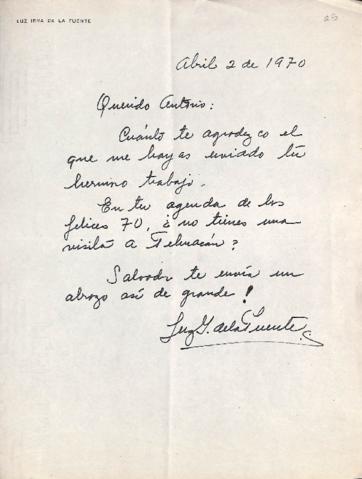 LUZ IRMA DE LA FUENTE
25
Abril 2 de 1970
Querido Antonio:
Cuánto te agradezco el
que me hayas enviado tu
hermoso trabajo.
En tu agenda de los
felices 70, ¿no tienes una
visita a Tehuacán?
Salvador te envía un
abrazo así de grande!
Luz I. de la Fuente